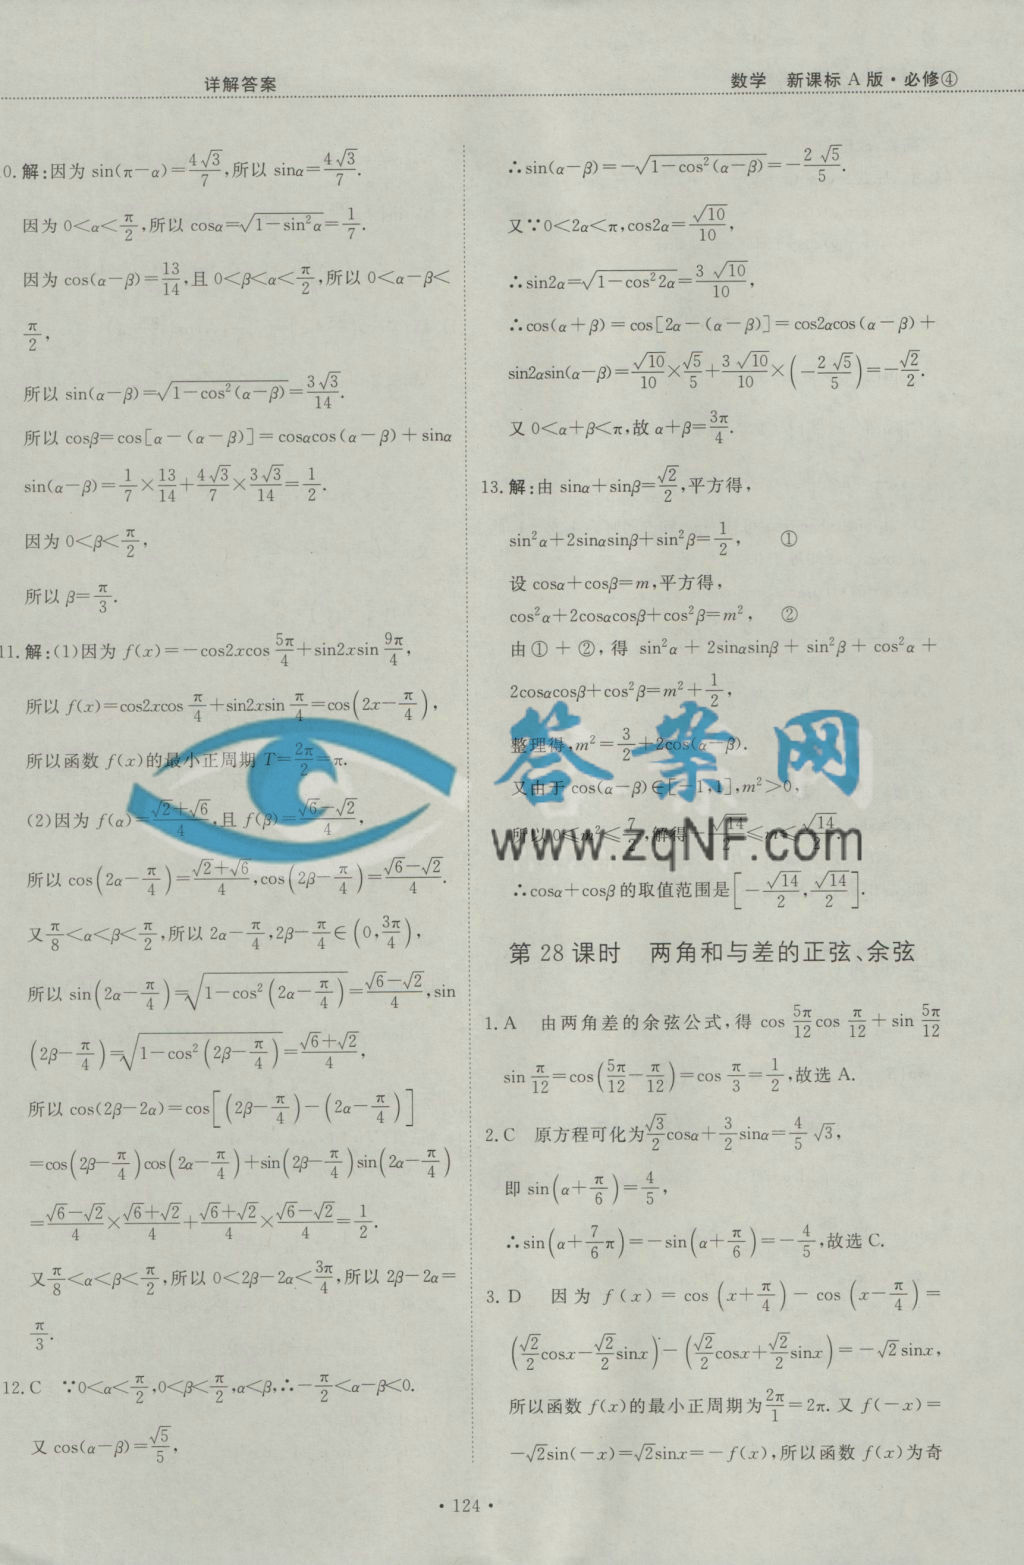 详解答案
数学 新课标A版·必修④
0.解:因为 sin(π-α)=4√3/7,所以 sinα=4√3/7.
因为 0<α<π/2,所以 cosα=√(1-sin²α)=1/7.
因为 cos(α-β)=13/14,且 0<β<α<π/2,所以 0<α-β<
π/2,
所以 sin(α-β)=√(1-cos²(α-β))=3√3/14.
所以 cosβ=cos[α-(α-β)]=cosαcos(α-β)+sinα
sin(α-β)=1/7×13/14+4√3/7×3√3/14=1/2.
因为 0<β<π/2,
所以 β=π/3.
11.解:(1)因为 f(x)=-cos2xcos 5π/4+sin2xsin 9π/4,
所以 f(x)=cos2xcos π/4+sin2xsin π/4=cos(2x-π/4),
所以函数 f(x)的最小正周期 T=2π/2=π.
(2)因为 f(α)=(√2+√6)/4,且 f(β)=(√6-√2)/4,
所以 cos(2α-π/4)=(√2+√6)/4,cos(2β-π/4)=(√6-√2)/4.
又 π/8<α<β<π/2,所以 2α-π/4,2β-π/4∈(0,3π/4),
所以 sin(2α-π/4)=√(1-cos²(2α-π/4))=(√6-√2)/4,sin
(2β-π/4)=√(1-cos²(2β-π/4))=(√6+√2)/4,
所以 cos(2β-2α)=cos[(2β-π/4)-(2α-π/4)]
=cos(2β-π/4)cos(2α-π/4)+sin(2β-π/4)sin(2α-π/4)
=(√6-√2)/4×(√6+√2)/4+(√6+√2)/4×(√6-√2)/4=1/2.
又 π/8<α<β<π/2,所以 0<2β-2α<3π/4,所以 2β-2α=
π/3.
12.C ∵0<α<π/2,0<β<π/2,α<β,∴-π/2<α-β<0.
又 cos(α-β)=√5/5,
∴sin(α-β)=-√(1-cos²(α-β))=-2√5/5.
又∵0<2α<π,cos2α=√10/10,
∴sin2α=√(1-cos²2α)=3√10/10,
∴cos(α+β)=cos[2α-(α-β)]=cos2αcos(α-β)+
sin2αsin(α-β)=√10/10×√5/5+3√10/10×(-2√5/5)=-√2/2.
又 0<α+β<π,故 α+β=3π/4.
13.解:由 sinα+sinβ=√2/2,平方得,
sin²α+2sinαsinβ+sin²β=1/2, ①
设 cosα+cosβ=m,平方得,
cos²α+2cosαcosβ+cos²β=m², ②
由①+②,得 sin²α+2sinαsinβ+sin²β+cos²α+
2cosαcosβ+cos²β=m²+1/2,
整理得,m²=3/2+2cos(α-β).
又由于 cos(α-β)∈[-1,1],m²>0,
所以 0≤m²≤7/2,解得-√14/2≤m≤√14/2.
∴cosα+cosβ的取值范围是[-√14/2,√14/2].
答案网
www.zqNF.com
第28课时 两角和与差的正弦、余弦
1.A 由两角差的余弦公式,得 cos 5π/12 cos π/12+sin 5π/12
sin π/12=cos(5π/12-π/12)=cos π/3=1/2,故选A.
2.C 原方程可化为√3/2 cosα+3/2 sinα=4/5 √3,
即 sin(α+π/6)=4/5,
∴sin(α+7/6π)=-sin(α+π/6)=-4/5,故选C.
3.D 因为 f(x)=cos(x+π/4)-cos(x-π/4)=
(√2/2cosx-√2/2sinx)-(√2/2cosx+√2/2sinx)=-√2sinx,
所以函数 f(x)的最小正周期为2π/1=2π.又 f(-x)=
-√2sin(-x)=√2sinx=-f(x),所以函数 f(x)为奇
·124·